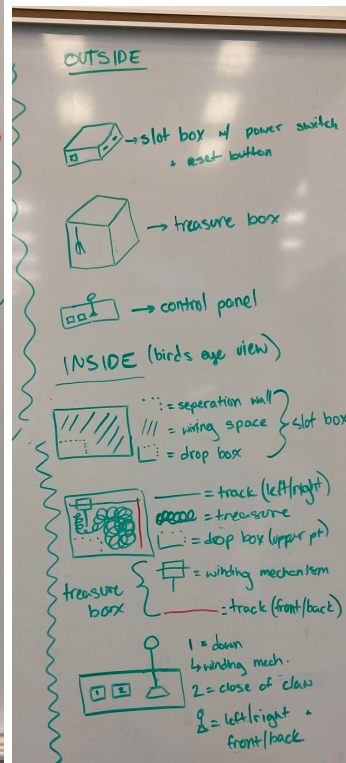 OUTSIDE
→ slot box w/ power switch
+ reset button
→ treasure box
→ control panel
INSIDE (birds eye view)
= seperation wall
/// = wiring space } slot box
= drop box
= track (left/right)
= treasure
= drop box (upper pt)
= winding mechanism
treasure
box
= track (front/back)
1 = down
↳ winding mech.
1 2
2 = close of claw
= left/right +
front/back